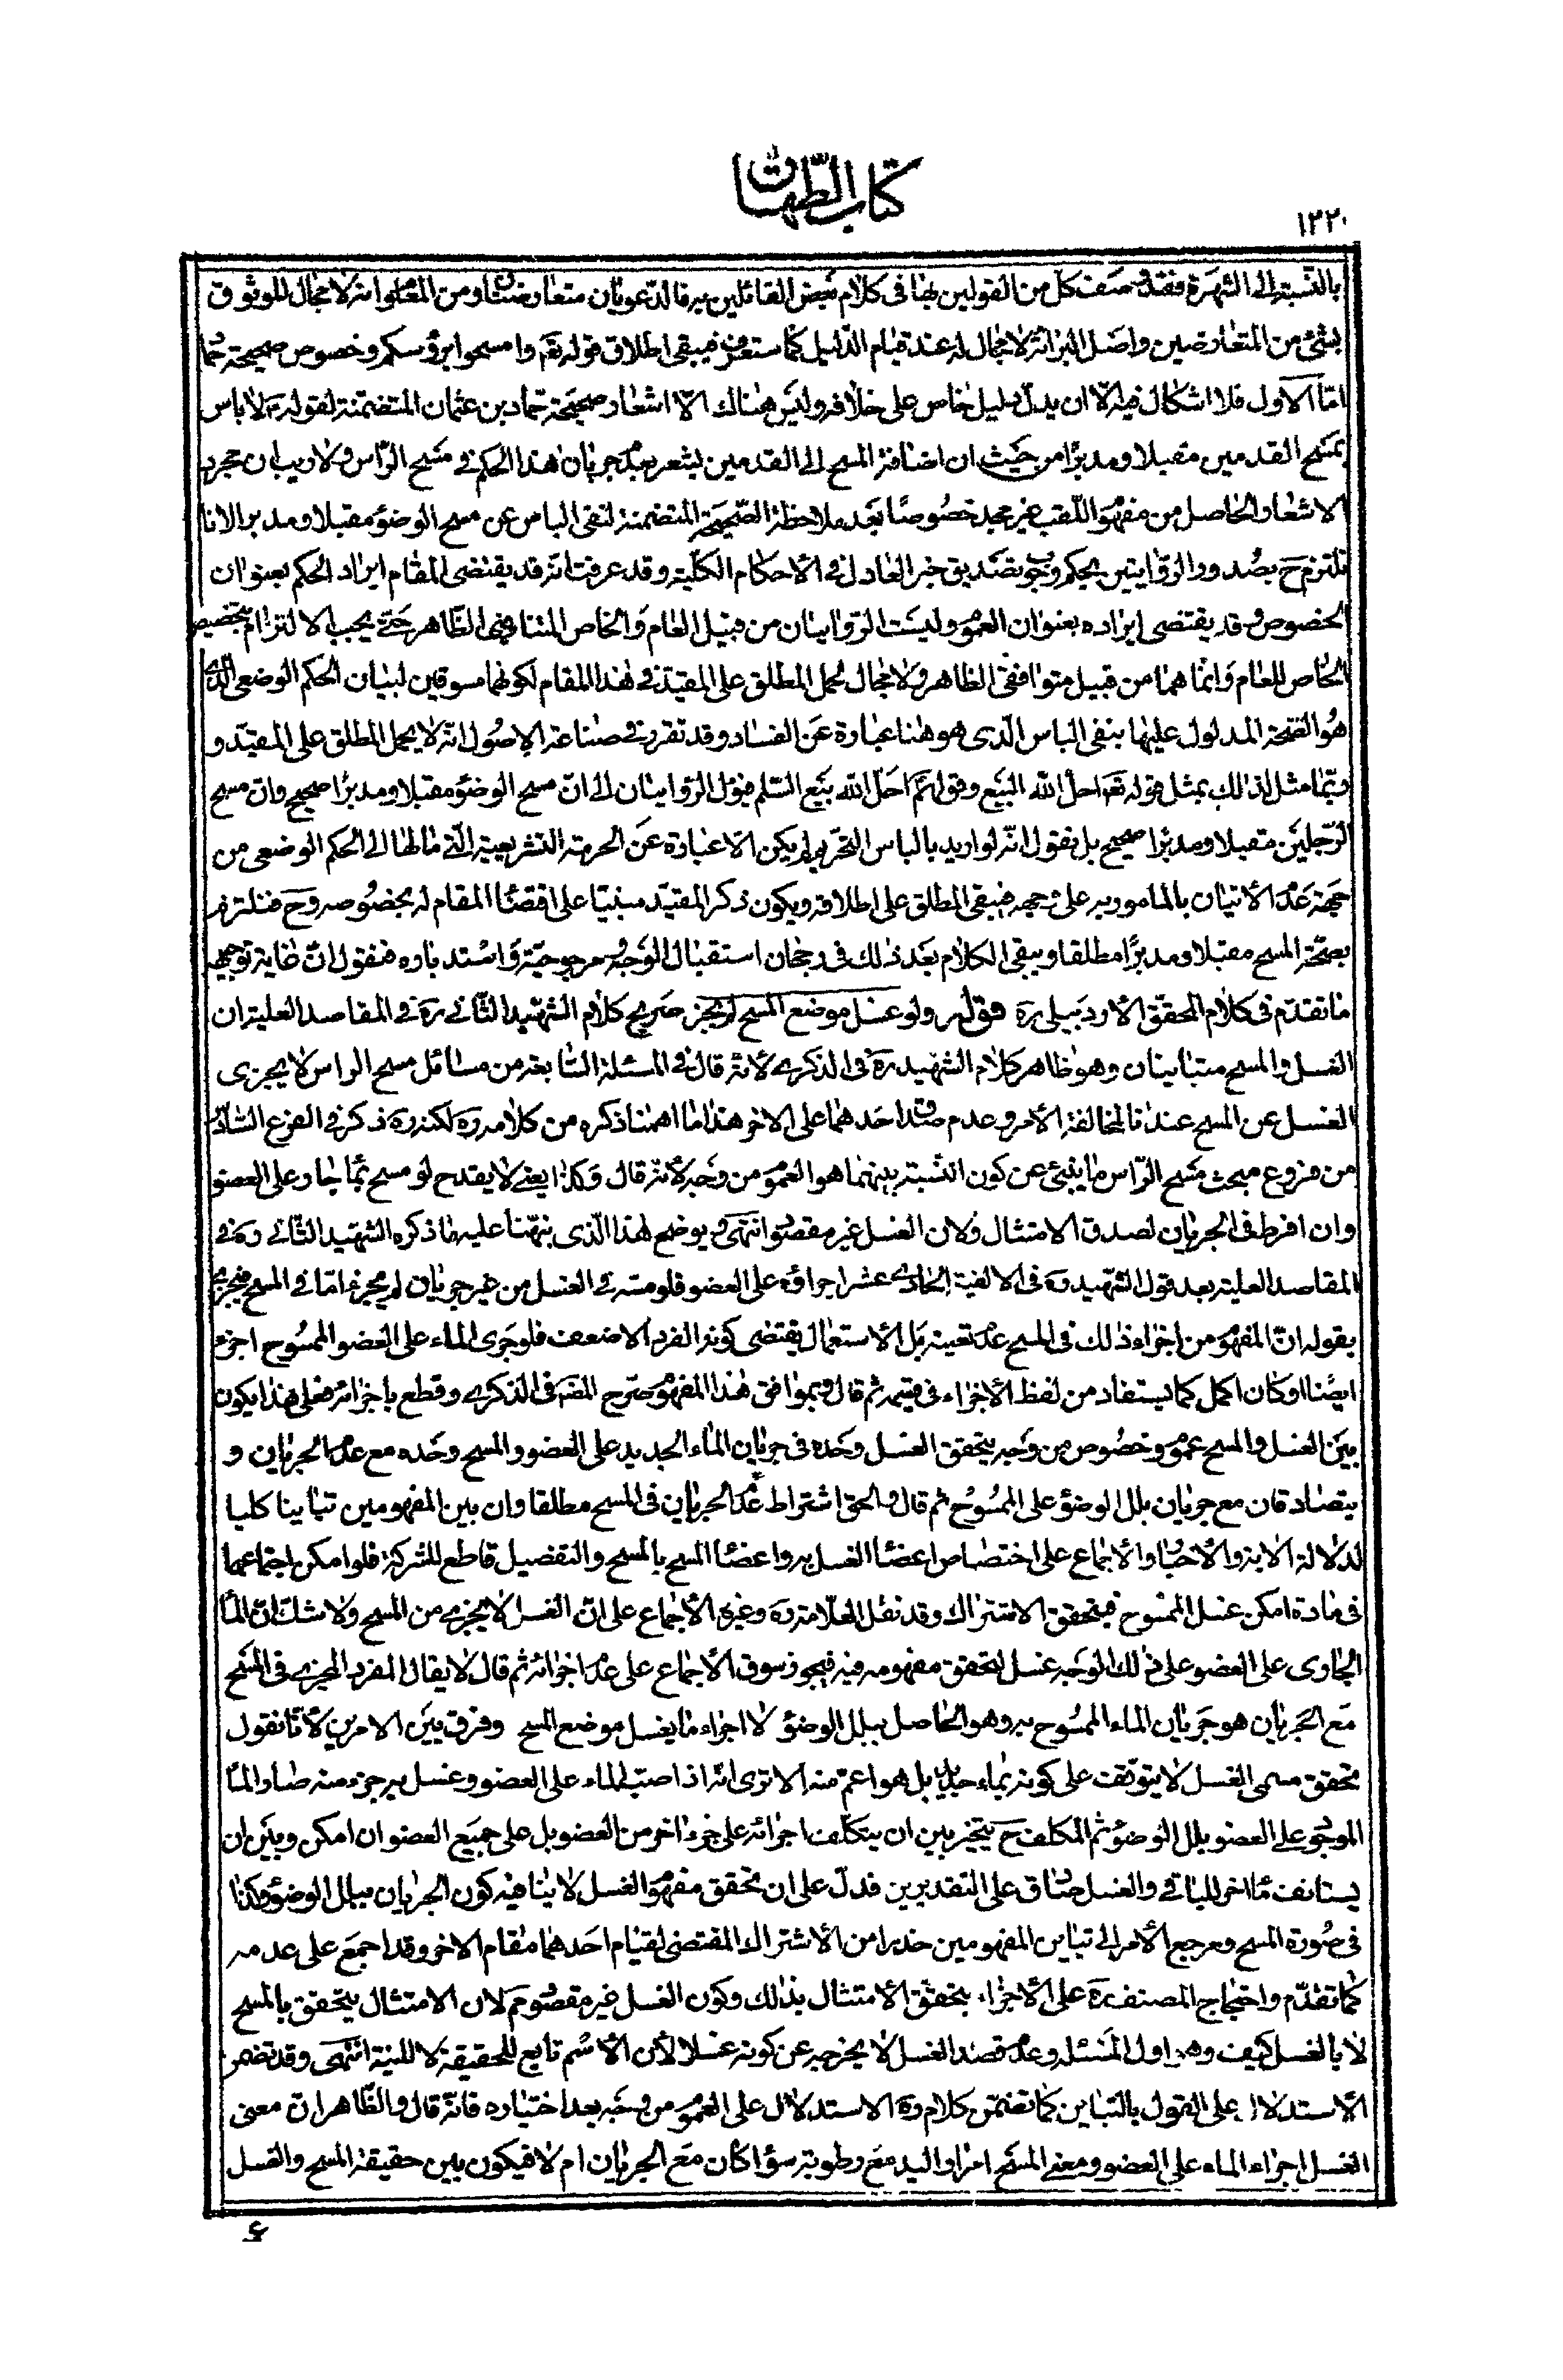 كتاب الطهارة
١٢٢٠
بالنسبة الى الشهرة فقد وصف كل من القولين بها فى كلام بعض القائلين به فالدعويان متعارضتان ومن المعلوم انه لا مجال للوثوق
بشئ من المتعارضين واصل البرائة لا مجال له عند قيام الدليل كما ستعرف فيبقى اطلاق قوله تعم وامسحوا برؤسكم وخصوص صحيحة حماد
امّا الاول فلا اشكال فيه الّا ان يدلّ دليل خاص على خلافه وليس هناك الّا اشعار صحيحة حماد بن عثمان المتضمنة لقوله ع لا باس
بمسح القدمين مقبلا ومدبرا من حيث ان اضافة المسح الى القدمين يشعر بعدم جريان هذا الحكم فى مسح الراس ولا ريب ان مجرد
الاشعار الحاصل من مفهوم اللقب غير مجد خصوصًا بعد ملاحظة الصّحيحة المتضمنة لنفى الباس عن مسح الوضوء مقبلا ومدبرا لانا
نلتزم ح بصدور الروايتين بحكم وجوب تصديق خبر العادل فى الاحكام الكلية وقد عرفت انه قد يقتضى المقام ايراد الحكم بعنوان
الخصوص وقد يقتضى ايراده بعنوان العموم وليست الروايتان من قبيل العام والخاص المتنافيى الظاهر حتى يجب الالتزام بتخصيص
الخاص للعام وانما هما من قبيل متوافقى الظاهر ولا مجال لحمل المطلق على المقيد فى هذا المقام لكونهما مسوقين لبيان الحكم الوضعى الذى
هو الصحة المدلول عليها بنفى الباس الذى هو هنا عبارة عن الفساد وقد تقرر فى صناعة الاصول انه لا يحمل المطلق على المقيد و
ربّما مثل لذلك بمثل قوله تعم احل الله البيع وقولهم احل الله بيع السلم فيؤل الروايتان الى ان مسح الوضوء مقبلا ومدبرا صحيح وان مسح
الرجلين مقبلا ومدبرا صحيح بل نقول انه لو اريد بالباس التحريم لم يكن الا عبارة عن الحرمة التشريعية التى مالها الى الحكم الوضعى من
جهة عدم الاتيان بالمامور به على وجهه فيبقى المطلق على اطلاقه ويكون ذكر المقيد مبنيا على اقتضاء المقام له بخصوصه وح فنلتزم
بصحة المسح مقبلا ومدبرًا مطلقا ويبقى الكلام بعد ذلك فى رجحان استقبال الوجه ومرجوحيّة واستدباره فنقول ان غاية توجيهه
ما تقدم فى كلام المحقق الاردبيلى ره قوله ولو غسل موضع المسح لم يجز صريح كلام الشهيد الثانى ره فى المقاصد العلية ان
الغسل والمسح متباينان وهو ظاهر كلام الشهيد ره فى الذكرى لانه قال فى المسئلة السابعة من مسائل مسح الراس لا يجزى
الغسل عن المسح عندنا لمخالفة الامر وعدم صدق احدهما على الاخر هذا ما اهمنا ذكره من كلامه ره لكنه ره ذكر فى الفرع الشاذ
من فروع مبحث مسح الرّاس ما ينبئ عن كون النسبة بينهما هو العموم من وجه لانه قال وكذا يعنى لا يقدح لو مسح بماء جار على العضو
وان افرط فى الجريان لصدق الامتثال ولان الغسل غير مقصود انتهى ويوضح هذا الذى نبهنا عليه ما ذكره الشهيد الثانى ره فى
المقاصد العلية بعد قول الشهيد ره فى الالفية الحادى عشر اجراؤه على العضو فلو مسّه فى الغسل من غير جريان لم يجز امّا فى المسح فيجزى
بقوله انّ المفهوم من اجزاء ذلك فى المسح عدم تعينه بل الاستعمال يقتضى كونه الفرد الاضعف فلو جرى الماء على العضو الممسوح اجزء
ايضًا او كان اكمل كما يستفاد من لفظ الاجزاء فى قيمه ثم قال وبموافق هذا المفهوم صرح المصه فى الذكرى وقطع باجزائه فعلى هذا يكون
بين الغسل والمسح عموم وخصوص من وجه يتحقق الغسل وحده فى جريان الماء الجديد على العضو والمسح وحده مع عدم الجريان و
يتصادقان مع جريان بلل الوضوء على الممسوح ثم قال والحق اشتراط عدم الجريان فى المسح مطلقا وان بين المفهومين تباينا كليا
لدلالة الاية والاخبار والاجماع على اختصاص اعضاء الغسل به واعضاء المسح بالمسح والتفصيل قاطع للشركة فلو امكن اجتماعهما
فى مادة امكن غسل الممسوح فيتحقق الاشتراك وقد نقل العلامة ره وغيره الاجماع على انّ الغسل لا يجزى من المسح ولا شك ان الماء
الجارى على العضو على ذلك الوجه غسل لتحقق مفهومه فيه فيجوز سوق الاجماع على عدم اجزائه ثم قال لا يقال الفرد المجزى فى المسح
مع الجريان هو جريان الماء الممسوح به وهو الحاصل ببلل الوضوء لا اجزاء ما يغسل موضع المسح وفرق بين الامرين لانّا نقول
تحقق مسمى الغسل لا يتوقف على كونه بماء جديد بل هو اعم منه الا ترى انه اذا صب الماء على العضو وغسل به جزء منه صار الماء
الموجود على العضو بلل الوضوء ثم المكلف ح يتخير بين ان يتكلّف اجرائه على جزء اخر من العضو بل على جميع العضو ان امكن وبين ان
يستانف ماء اخر للباقى والغسل صادق على التقديرين فدلّ على ان تحقق مفهوم الغسل لا ينافيه كون الجريان ببلل الوضوء وكذا
فى صورة المسح ومرجع الامر الى تباين المفهومين حذرا من الاشتراك المقتضى لقيام احدهما مقام الاخر وقد اجمع على عدمه
كما تقدّم واحتجاج المصنف ره على الاجزاء بتحقق الامتثال بذلك وكون الغسل غير مقصود مم لان الامتثال يتحقق بالمسح
لا بالغسل كيف وهو اول المسئلة وعدم قصد الغسل لا يخرجه عن كونه غسلا لان الاسم تابع للحقيقة لا للنية انتهى وقد تضمن
الاستدلال على القول بالتباين كما تضمّن كلام ره الاستدلال على العموم من وجه بعد اختياره فانّه قال والظاهر ان معنى
الغسل اجراء الماء على العضو ومعنى المسح امرار اليد مع رطوبة سواء كان مع الجريان ام لا فيكون بين حقيقة المسح والغسل